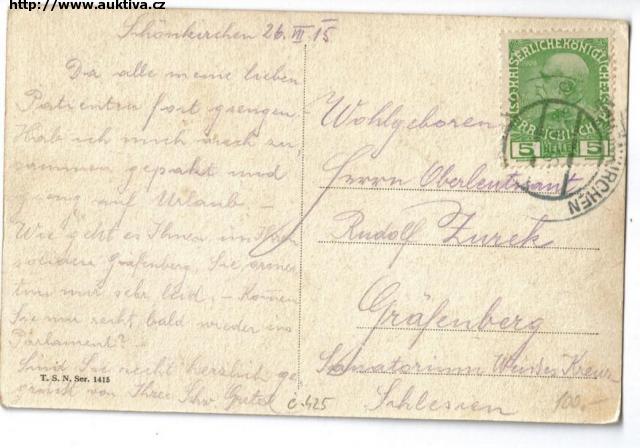 http://www.auktiva.cz
Schönkirchen 26. III 15
Da alle meine lieben
Patienten fort giengen
Hab ich mich auch zu
sammen gepakt und
gieng auf Urlaub. —
Wie geht es Ihnen im
Gräfenberg, Sie armes
tun mir sehr leid. — Kommen
Sie nur recht bald wieder ins
Parlament? —
Sind Sie recht herzlich ge
grüsst von Ihrer Schw.
T. S. N. Ser. 1415
č. 425
K.K. OESTERREICHISCHE
5 HELLER 5
KIRCHEN
Wohlgeboren
Herrn Oberleutnant
Rudolf Zurek
Gräfenberg
Sanatorium Weisses Kreuz
Schlesien
100.-